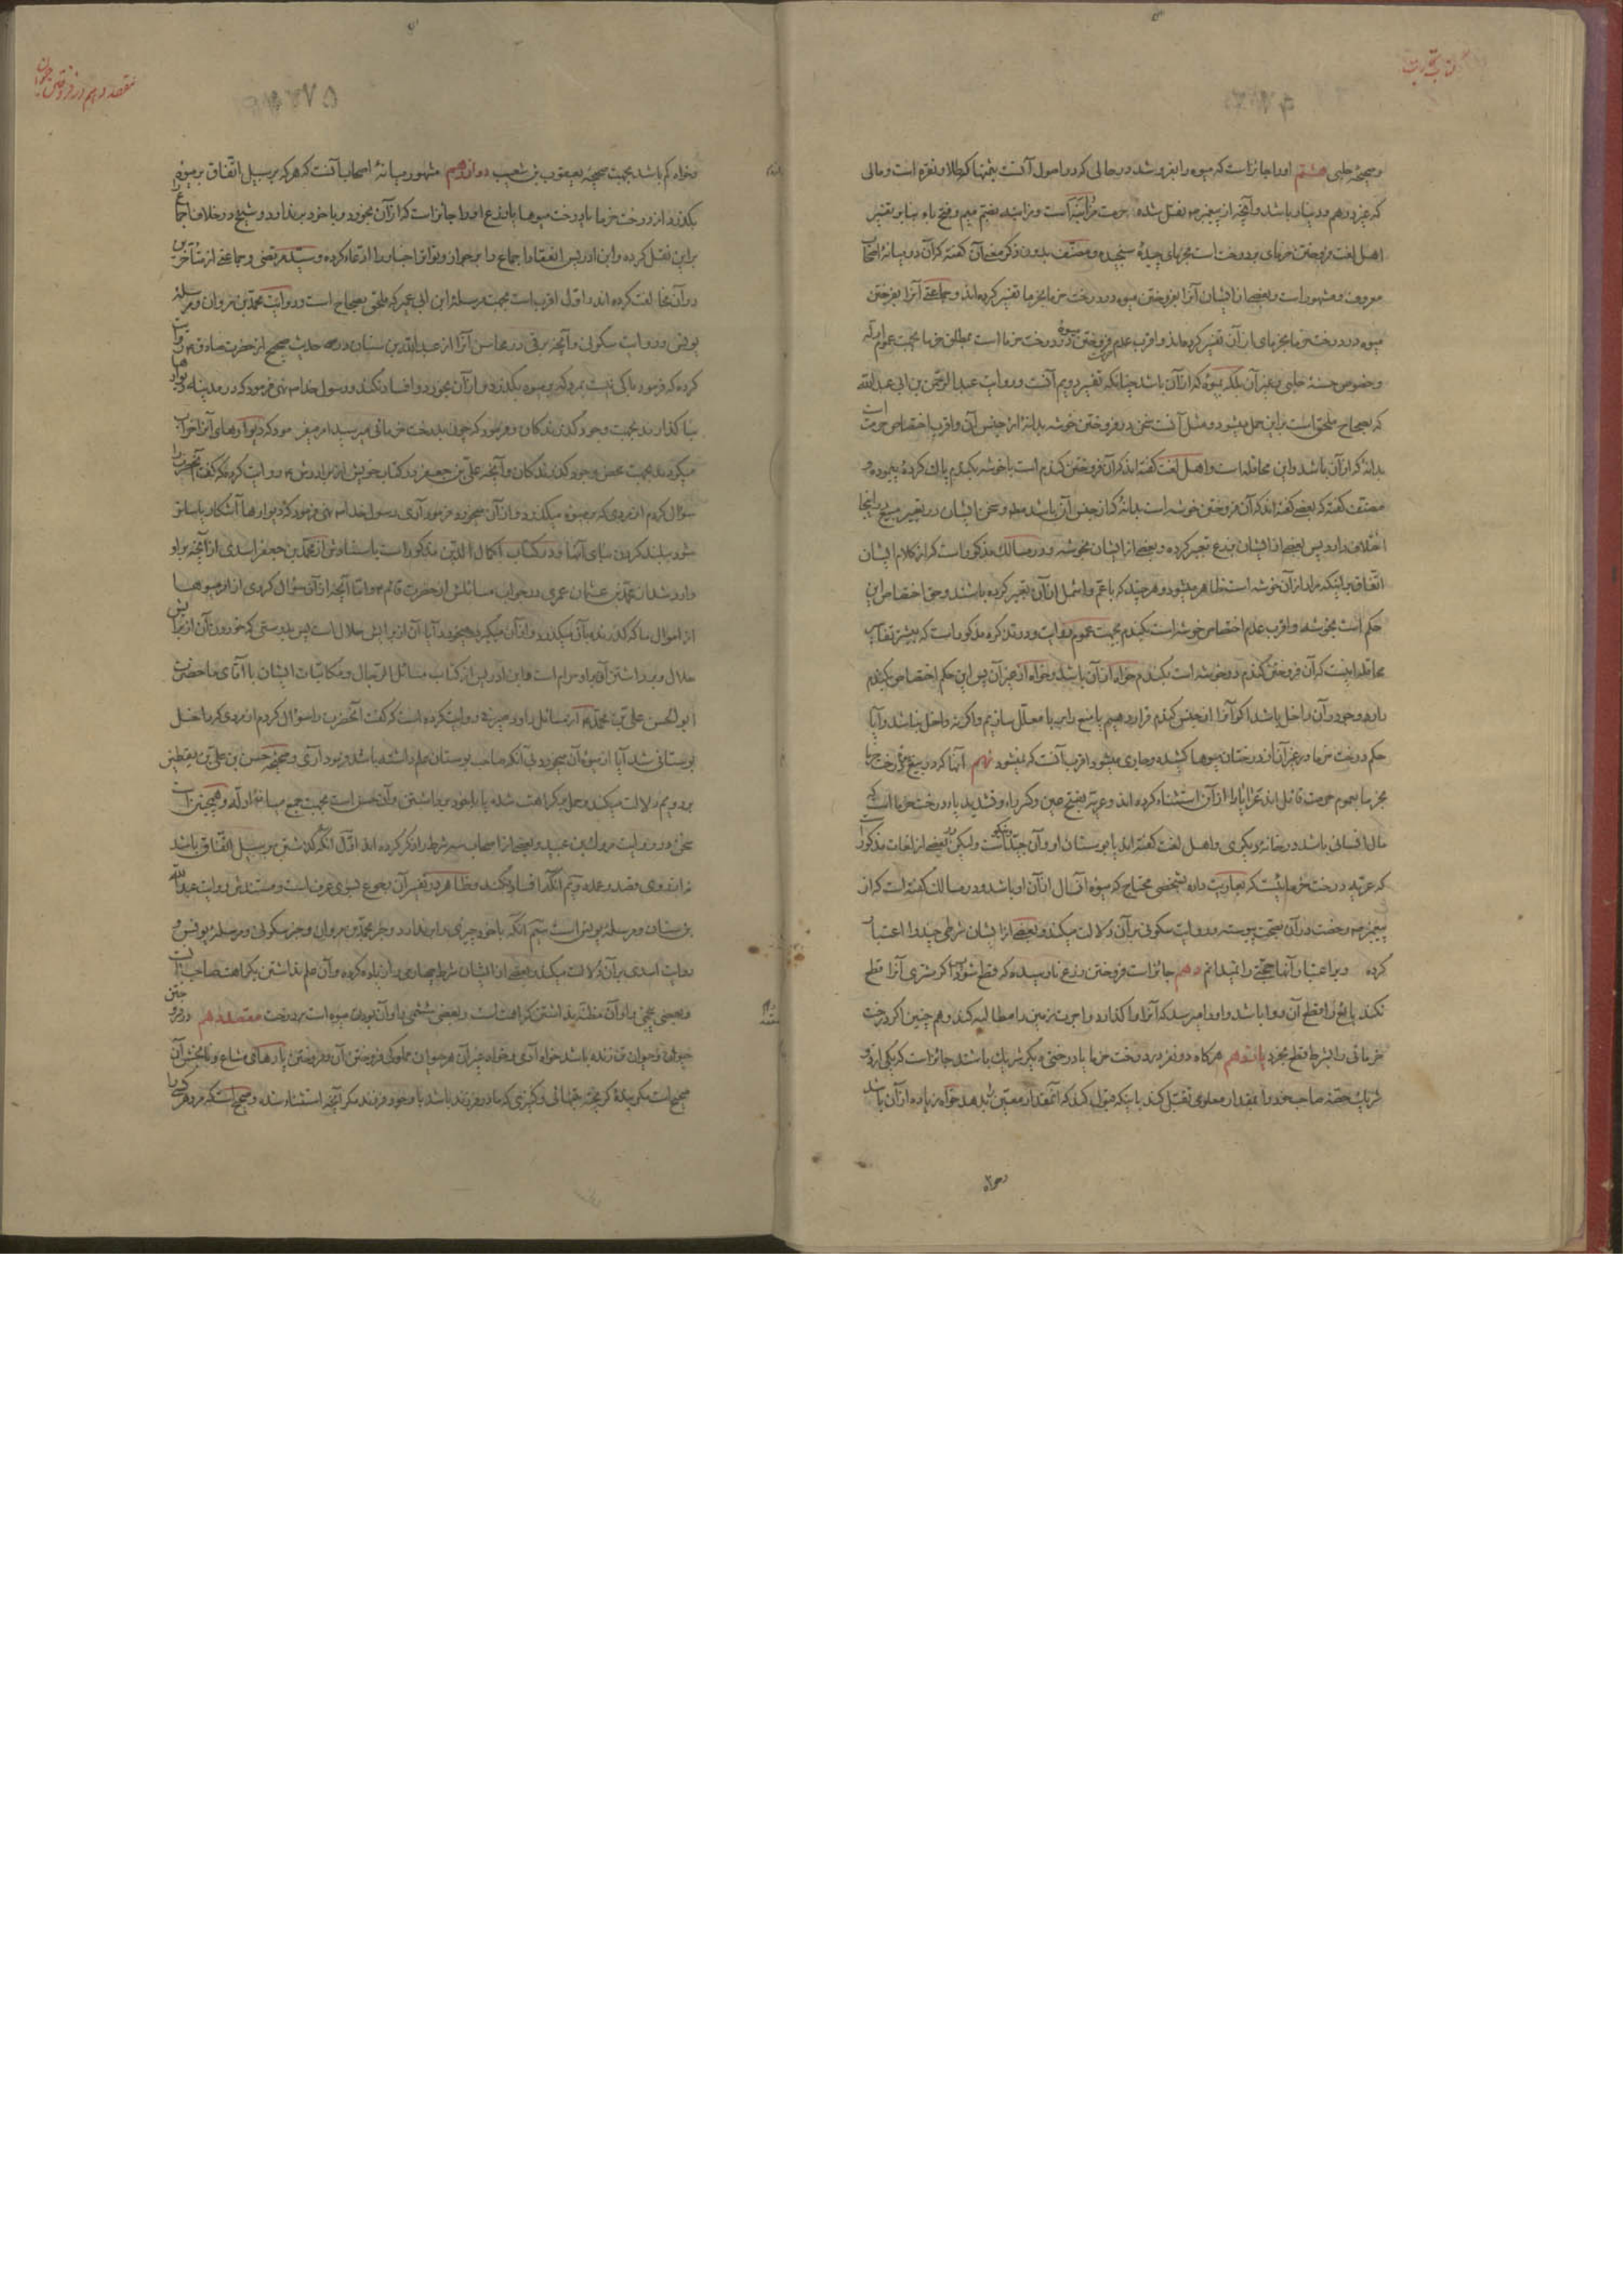 کتاب تجارت
وصحیحهٔ حلبی هشتم اورا جائز است که میوه را بفروشد در حالی که در اصول آنست بثمنها که طلا و نقره است و مالی
که غیر درهم و دینار باشد و آنچه از پیغمبر ص نقل شده حرمت مزابنه است و مزابنه بضم میم و فتح باء بنا بر تفسیر
اهل لغت فروختن خرمای بر درخت است بخرمای چیدهٔ سنجیده و مصنف بدون ذکر معنی آن گفته که آن در میانهٔ اصحاب
معروف و مشهور است و بعضی از ایشان آنرا بفروختن میوه در درخت خرما بخرما تفسیر کرده‌اند و جماعتی آنرا بفروختن
میوه در درخت خرما بخرمای از آن تفسیر کرده‌اند و اقرب عدم فروختن میوه در درخت خرما است بمطلق خرما بجهت عموم ادله
وخصوص حسنهٔ حلبی بغیر آن بلکه بمیوهٔ که از آن باشد چنانکه تفسیر دویم آنست و روایت عبد الرحمن بن ابی عبد الله
که بصحاح ملحق است بر این حمل میشود و مثل آنست سخن در فروختن خوشه بدانهٔ از جنس آن و اقرب اختصاص حرمت است
بدانهٔ که از آن باشد و این محاقله است و اهل لغت گفته‌اند که آن فروختن گندم است با خوشه بگندم پاک کرده پیموده و
مصنف گفته که بعضی گفته‌اند که آن فروختن خوشه است بدانهٔ که از جنس آن باشد و سخن ایشان در تعبیر مبیع در اینجا
اختلاف دارد پس بعضی از ایشان بزرع تعبیر کرده و بعضی از ایشان بخوشه و در مسالک مذکور است که از کلام ایشان
اتفاق بر اینکه مراد از آن خوشه است ظاهر میشود و هر چند که باعم و اشمل از آن تعبیر کرده باشند و حق اختصاص این
حکم است بخوشه و اقرب عدم اختصاص خوشه است بگندم بجهت عموم روایت و در تذکره مذکور است که بیشتر تفاسیر
محاقله اینست که آن فروختن گندم در خوشه است بگندم خواه از آن باشد و خواه از غیر آن پس این حکم اختصاص بگندم
دارد وجو در آن داخل باشد اگر آنرا از جنس گندم قرار دهیم یا منع را بربا معلل سازیم و اگر نه داخل نباشد و آیا
حکم درخت خرما در غیر آن از درختان میوها کشیده و جاری میشود اقرب آنست که نمیشود نهم آنها که در بیع درخت خرما
بخرما بعموم حرمت قائل اند عرایا را از آن استثناء کرده اند و عریه بفتح عین و کسر راء و تشدید یا درخت خرما است که
مال انسانی باشد در خانهٔ دیگری و اهل لغت گفته اند یا بوستان او و آن جید و نیکو است ولیکن در بعضی از لغات مذکور
که عریه درخت خرما نیست که بعاریت داده بشخصی محتاج که میوهٔ آنسال از آن او باشد و در مسالک گفته است که از
پیغمبر ص رخصت در آن بصحت پیوسته و روایت سکونی بر آن دلالت میکند و بعضی از ایشان شرطی چند را اعتبار
کرده و بر اعتبار آنها حجتی را نمیدانم دهم جائز است فروختن زرع نارسیده که قطع شود و اگر مشتری آنرا قطع
نکند بایع را قطع آن روا باشد و او را میرسد که آنرا وا گذارد و اجرت زمین را مطالبه کند و هم چنین اگر درخت
خرمائی را بشرط قطع بخرد یازدهم هر گاه دو نفر در درخت خرما یا درختی دیگر شریک باشند جائز است که یکی از دو
شریک حصهٔ صاحب خود را بمقدار معلومی تقبل کند باینکه قبول کند که آنمقدار معین بدهد خواه زیاده از آن باشد
وخواه
مقصد دهم در فروختن حیوان
وخواه کم باشد بجهت صحیحهٔ یعقوب بن شعیب دوازدهم مشهور میانهٔ اصحاب آنست که هر که بر سبیل اتفاق بر میوهٔ
بگذرد از درخت خرما یا درخت میوها یا زرع او را جائز است که از آن بخورد و با خود بر ندارد و شیخ در خلاف اجماع
بر این نقل کرده و ابن ادریس انعقاد اجماع را بر جواز و تواتر اخبار را ادعاء کرده و سید مرتضی و جماعتی از متأخرین
در آن مخالفت کرده اند و اول اقرب است بجهت مرسلهٔ ابن ابی عمیر که ملحق بصحاح است و روایت محمد بن مروان و مرسلهٔ
یونس و روایت سکونی و آنچه برقی در محاسن آنرا از عبد الله بن سنان در حدیث صحیح از حضرت صادق ع روایت
کرده که فرمود باکی نیست بمردی که بر میوه بگذرد و از آن بخورد و افساد نکند و رسول خدا ص نهی فرمود که در مدینه دیوارها
بنا گذارند بجهت وجود گذرندگان و فرمود که چون بدرخت خرمائی میرسید امر میفرمود که دیوارهای آنرا خراب
میکردند بجهت محض وجود گذرندگان و آنچه علی بن جعفر در کتاب خویش از برادرش ع روایت کرده که گفت آنحضرت را
سؤال کردم از مردی که بر میوه میگذرد و از آن میخورد فرمود آری رسول خدا ص نهی فرمود که دیوارها آشکار یا ساتر
شود ببلند کردن بنای آنها و در کتاب اکمال الدین مذکور است باسنادش از محمد بن جعفر اسدی از آنچه بر او
وارد شد از محمد بن عثمان عمری در جواب مسائلش از حضرت قائم ع و اما آنچه از آن سؤال کردی از امر میوها
از اموال ما که گذرنده بآن میگذرد و از آن میگیرد و میخورد آیا آن از برایش حلال است پس بدرستی که خوردن آن از برایش
حلال و برداشتن آن بر او حرام است و ابن ادریس از کتاب مسائل الرجال و مکاتبات ایشان با آقای ما حضرت
ابو الحسن علی بن محمد ع از مسائل داود صرمی روایت کرده است که گفت آنحضرت را سؤال کردم از مردی که داخل
بوستانی شد آیا از میوهٔ آن میخورد بی آنکه صاحب بوستان علم داشته باشد فرمود آری و صحیحهٔ حسن بن علی بن یقطین
بر دویم دلالت میکند و حمل بر کراهت شده یا بر خود برداشتن و آن حسن است بجهت جمع میانهٔ ادله و همچنین است
سخن در روایت مروک بن عبید و بعضی از اصحاب سه شرط را ذکر کرده اند اول آنکه گذشتن بر سبیل اتفاق باشد
نه از روی قصد و عمد دویم آنکه افساد نکند و ظاهر در تفسیر آن رجوع بسوی عرف است و مستندش روایت عبد الله
بن سنان و مرسلهٔ یونس است سیم آنکه با خود چیزی را بر ندارد و خبر محمد بن مروان و خبر سکونی و مرسلهٔ یونس و
روایت اسدی بر آن دلالت میکند و بعضی از ایشان شرط چهارمی را زیاده کرده و آن علم نداشتن بکراهت صاحب آنست
و بعضی پنجمی را و آن مظنه نداشتن کراهت است و بعضی ششمی را و آن بودن میوه است بر درخت مقصد دهم در فروختن
حیوان و حیوان زنده باشد خواه آدمی و خواه غیر آن هر حیوان مملوکی فروختن آن و فروختن پارهای مشاع و نا بخش آن
صحیح است مگر بندهٔ گریخته بتنهائی و کنیزی که مادر فرزند باشد با وجود فرزند مگر آنچه استثناء شده و صحیح است که مرد هر کس را